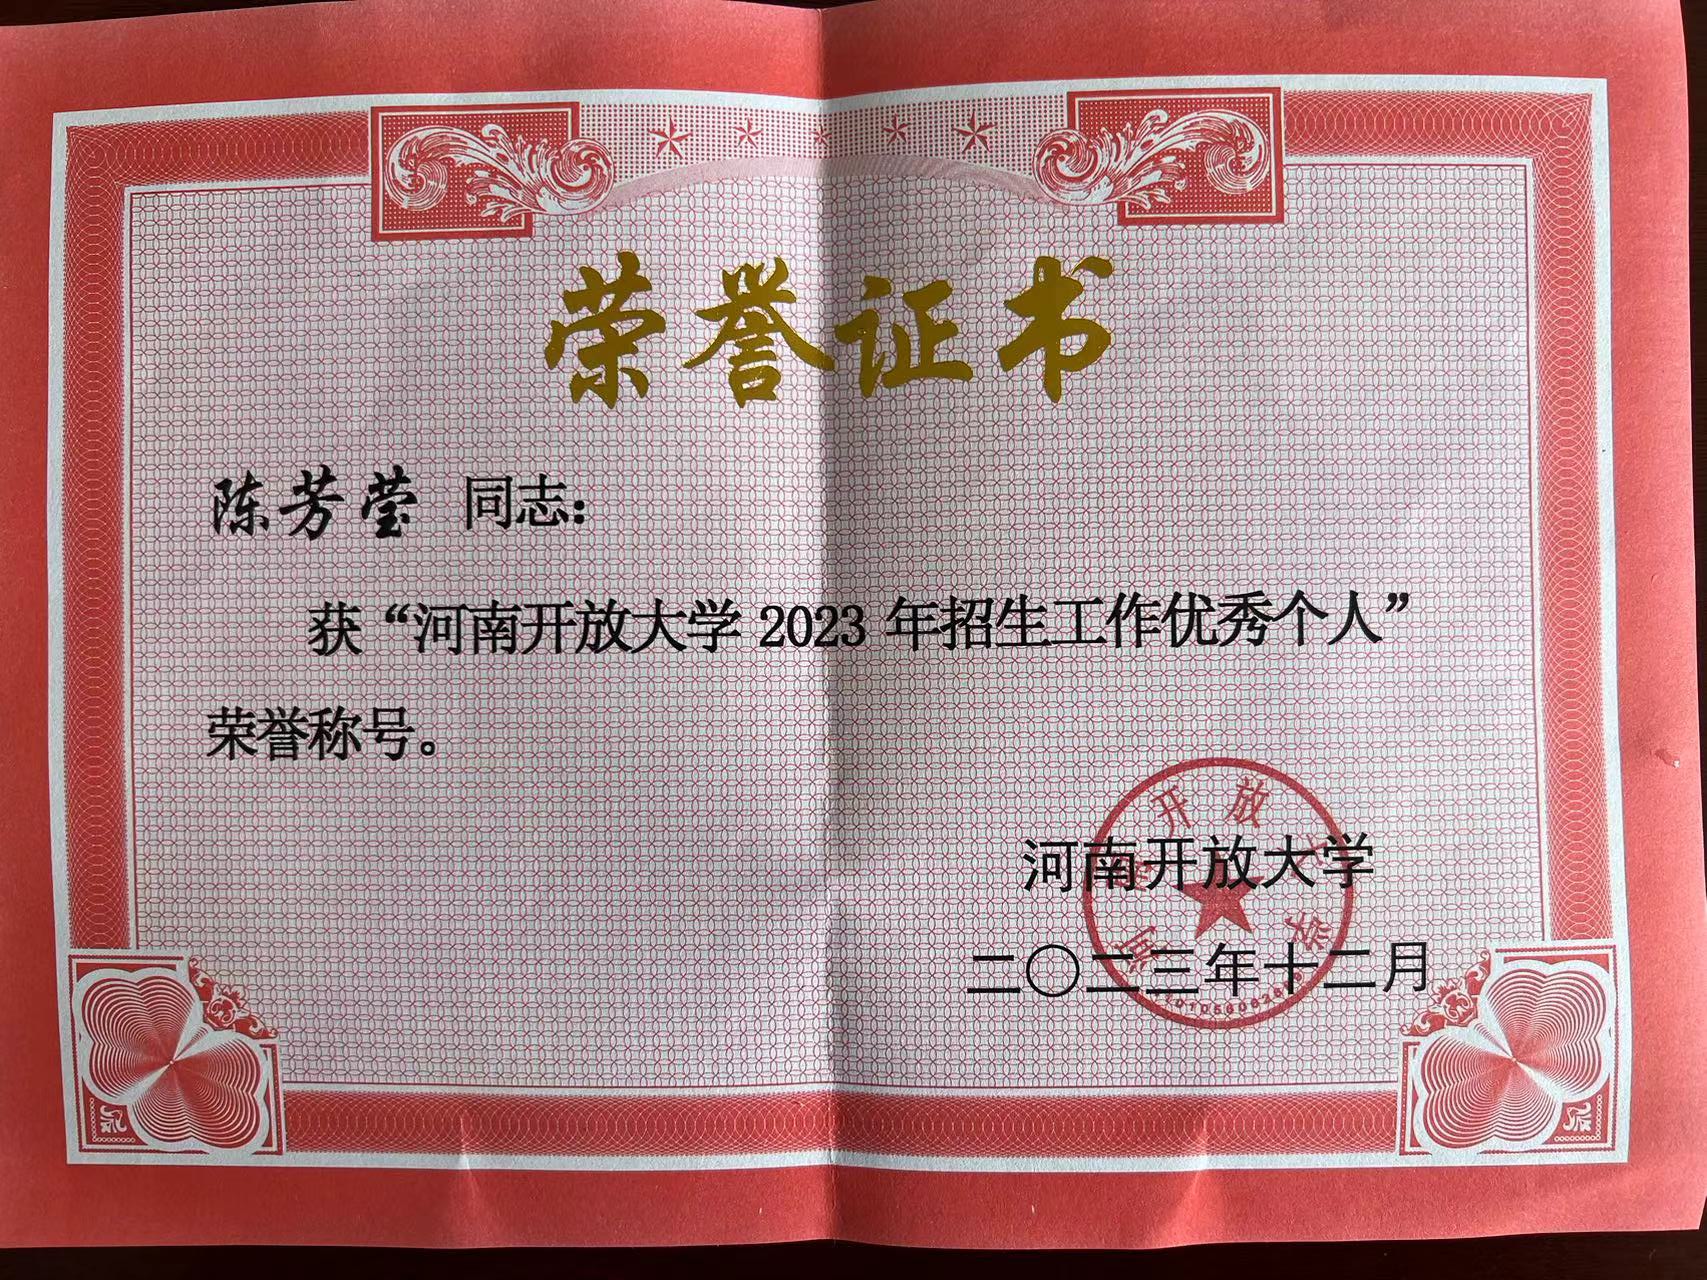 荣誉证书
陈芳莹 同志：
获“河南开放大学 2023 年招生工作优秀个人”
荣誉称号。
河南开放大学
二〇二三年十二月
河南开放大学